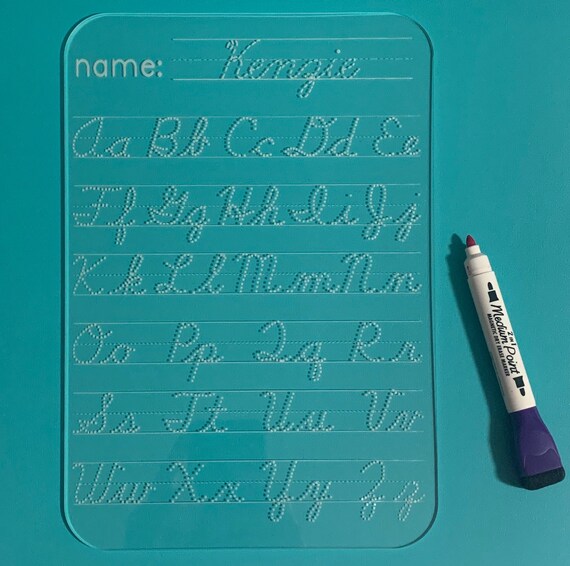 name: Kenzie
Aa Bb Cc Dd Ee
Ff Gg Hh Ii Jj
Kk Ll Mm Nn
Oo Pp Qq Rr
Ss Tt Uu Vv
Ww Xx Yy Zz
2 in 1
Medium Point
MAGNETIC DRY ERASE MARKER